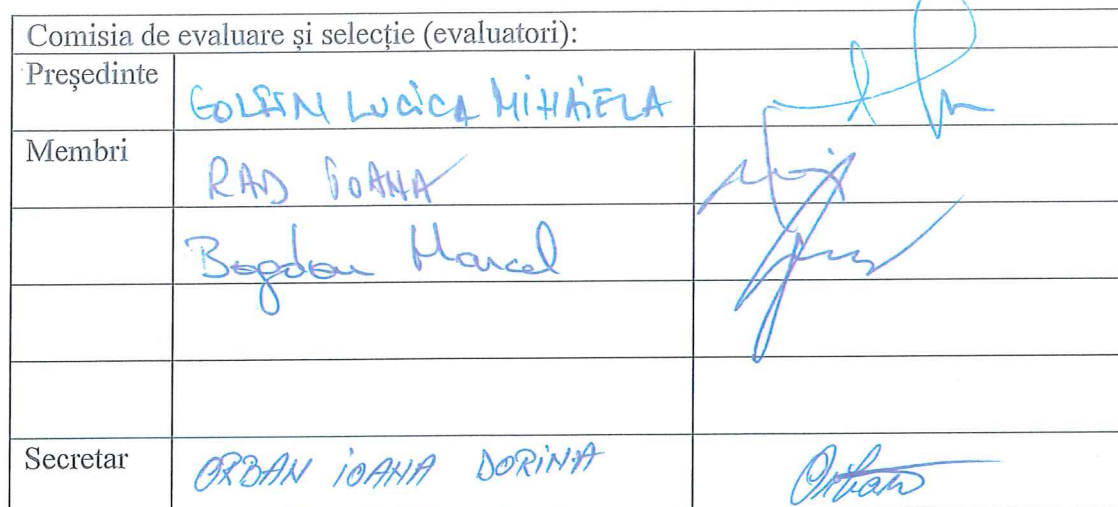 Comisia de evaluare și selecție (evaluatori):
Președinte LUCICA MIHAIELA
Membri RAD IOANA
Bogdan Marcel
Secretar ORBAN IOANA DORINA Orban